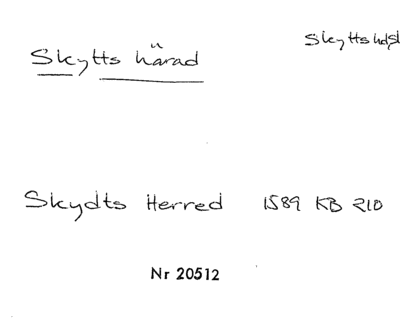 Skytts härad
Skyttshdsk
Skydts Herred 1589 KB 210
Nr 20512